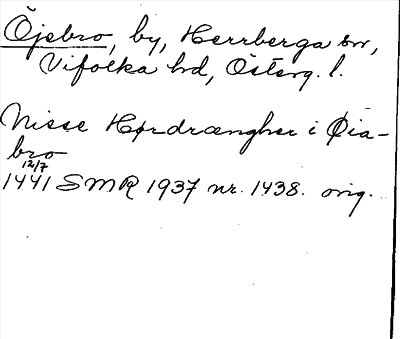 Öjebro, by, Herrberga sn,
Vifolka hd, Österg. l.
Nisse Hørdrængher i Øia-
bro
12/7
1441 SMR 1937 nr. 1438. orig.